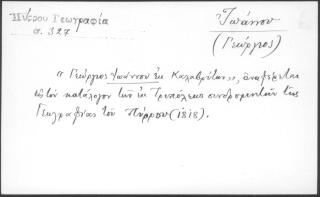 Πύρρου Γεωγραφία
σ. 327
Ἰωάννου
(Γεώργιος)
«Γεώργιος Ἰωάννου ἐκ Καλαβρύτων», ἀναφέρεται
εἰς τὸν κατάλογον τῶν ἐκ Τριπόλεως συνδρομητῶν τῆς
Γεωγραφίας τοῦ Πύρρου (1818).